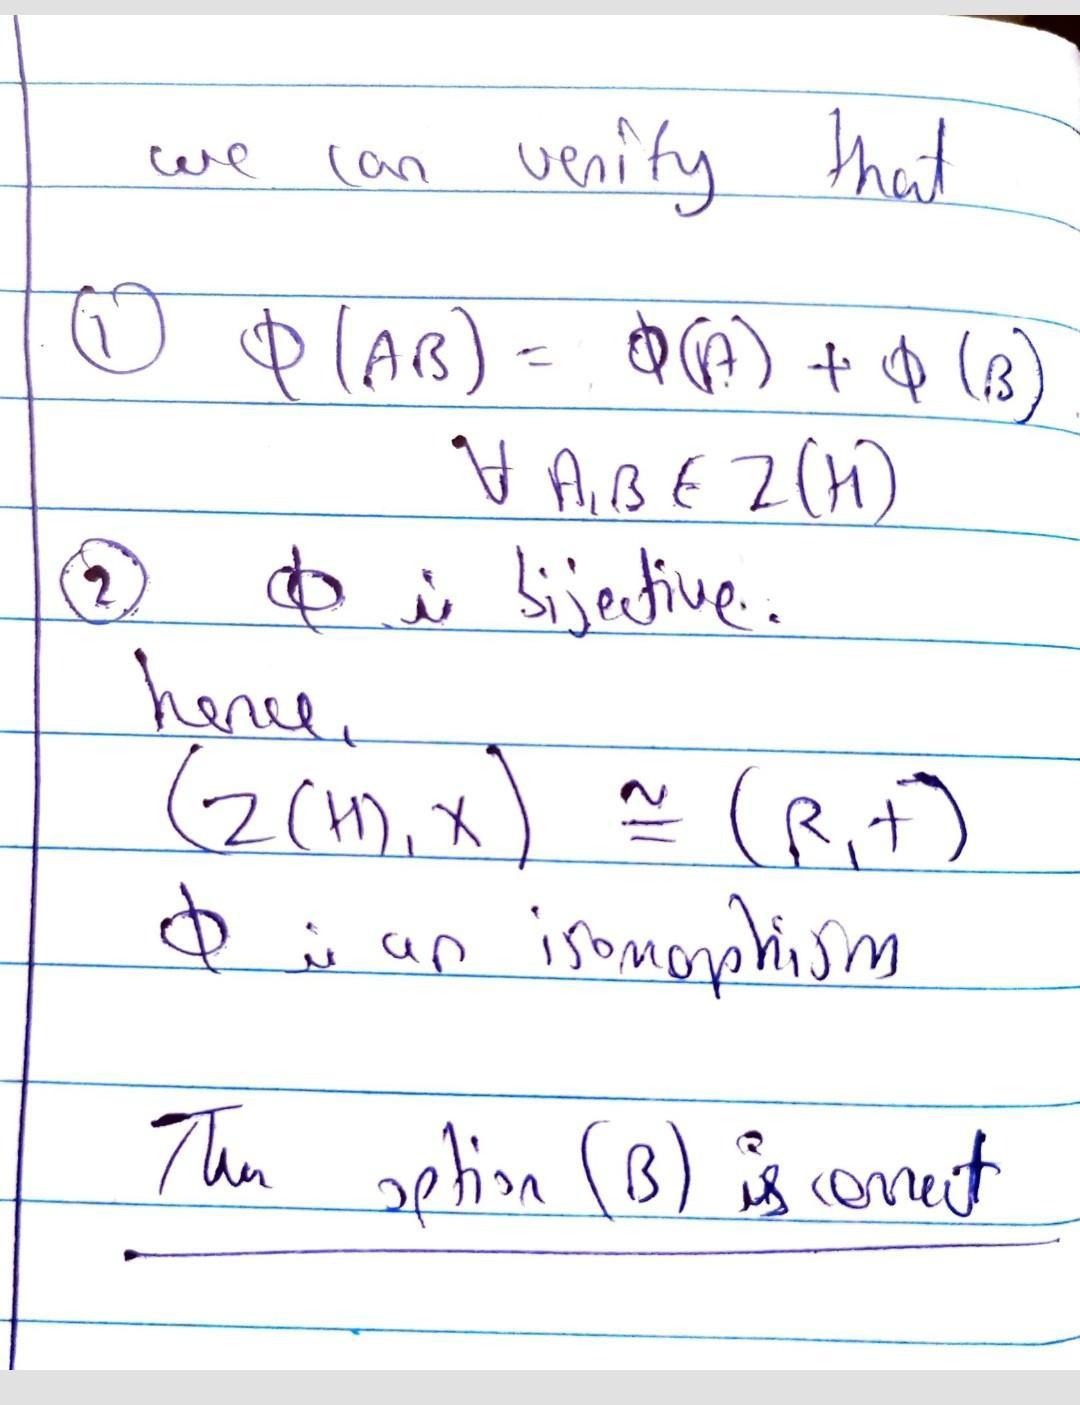 we can verify that
① ϕ(AB) = ϕ(A) + ϕ(B)
∀ A,B ∈ Z(H)
② ϕ is bijective.
hence,
(Z(H), ×) ≅ (R, +)
ϕ is an isomorphism
Thus option (B) is correct